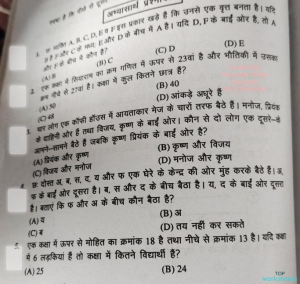 अभ्यासार्थ प्रश्न
1. छः व्यक्ति A, B, C, D, E व F इस प्रकार खड़े हैं कि उनसे एक वृत्त बनता है। यदि
B, F और C के मध्य; E और D के बीच में A है। यदि D, F के बाईं ओर है, तो A
और F के बीच में कौन है?
(A) B (B) C (C) D (D) E
2. एक कक्षा में सियाराम का क्रम गणित में ऊपर से 23वां है और भौतिकी में उसका
क्रम नीचे से 27वां है। कक्षा में कुल कितने छात्र हैं?
(A) 50 (B) 40
(C) 48 (D) आंकड़े अधूरे हैं
3. चार लोग एक कॉफी हॉउस में आयताकार मेज के चारों तरफ बैठे हैं। मनोज, प्रियंक
के दाहिनी ओर है तथा विजय, कृष्ण के बाईं ओर। कौन से दो लोग एक दूसरे-के
आमने-सामने बैठे हैं जबकि कृष्ण प्रियंक के बाईं ओर है?
(A) प्रियंक और कृष्ण (B) कृष्ण और विजय
(C) विजय और मनोज (D) मनोज और कृष्ण
4. छः दोस्त अ, ब, स, द, य और फ एक घेरे के केन्द्र की ओर मुंह करके बैठे हैं। अ,
फ के बाईं ओर दूसरा है। ब, स और द के बीच बैठा है। य, द के बाईं ओर दूसरा
है। बताएं कि फ और अ के बीच कौन बैठा है?
(A) य (B) अ
(C) ब (D) तय नहीं कर सकते
5. एक कक्षा में ऊपर से मोहित का क्रमांक 18 है तथा नीचे से क्रमांक 13 है। यदि कक्षा
में 6 लड़कियां हैं तो कक्षा में कितने विद्यार्थी हैं?
(A) 25 (B) 24
TOP